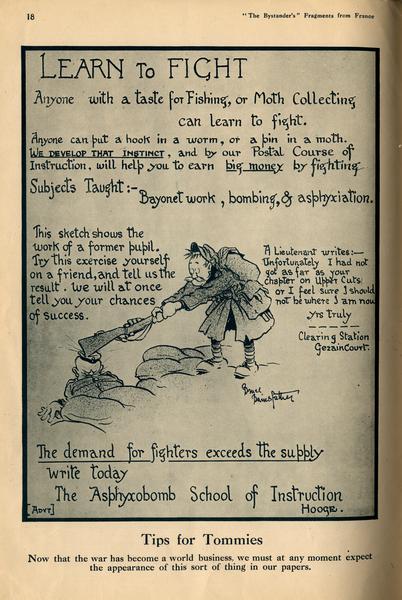 18
"The Bystander's" Fragments from France
LEARN TO FIGHT
Anyone with a taste for Fishing, or Moth Collecting
can learn to fight.
Anyone can put a hook in a worm, or a pin in a moth.
WE DEVELOP THAT INSTINCT, and by our Postal Course of
Instruction, will help you to earn big money by fighting
Subjects Taught:-
Bayonet work, bombing, & asphyxiation.
This sketch shows the
work of a former pupil.
Try this exercise yourself
on a friend, and tell us the
result. We will at once
tell you your chances
of success.
A Lieutenant writes:—
Unfortunately I had not
got as far as your
chapter on Upper Cuts
or I feel sure I should
not be where I am now
yrs truly
Clearing Station
Gezaincourt.
Bruce
Bairnsfather
The demand for fighters exceeds the supply
write today
The Asphyxobomb School of Instruction
[ADVT]
HOOGE.
Tips for Tommies
Now that the war has become a world business, we must at any moment expect
the appearance of this sort of thing in our papers.